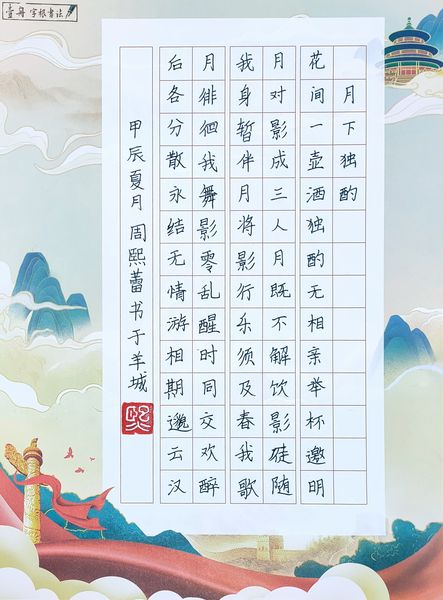 字根书法
月下独酌
花间一壶酒独酌无相亲举杯邀明
月对影成三人月既不解饮影徒随
我身暂伴月将影行乐须及春我歌
月徘徊我舞影零乱醒时同交欢醉
后各分散永结无情游相期邈云汉
甲辰夏月周熙蕾书于羊城
熙